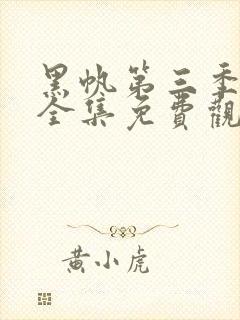 黑帆第三季
全集免費觀
黃小虎